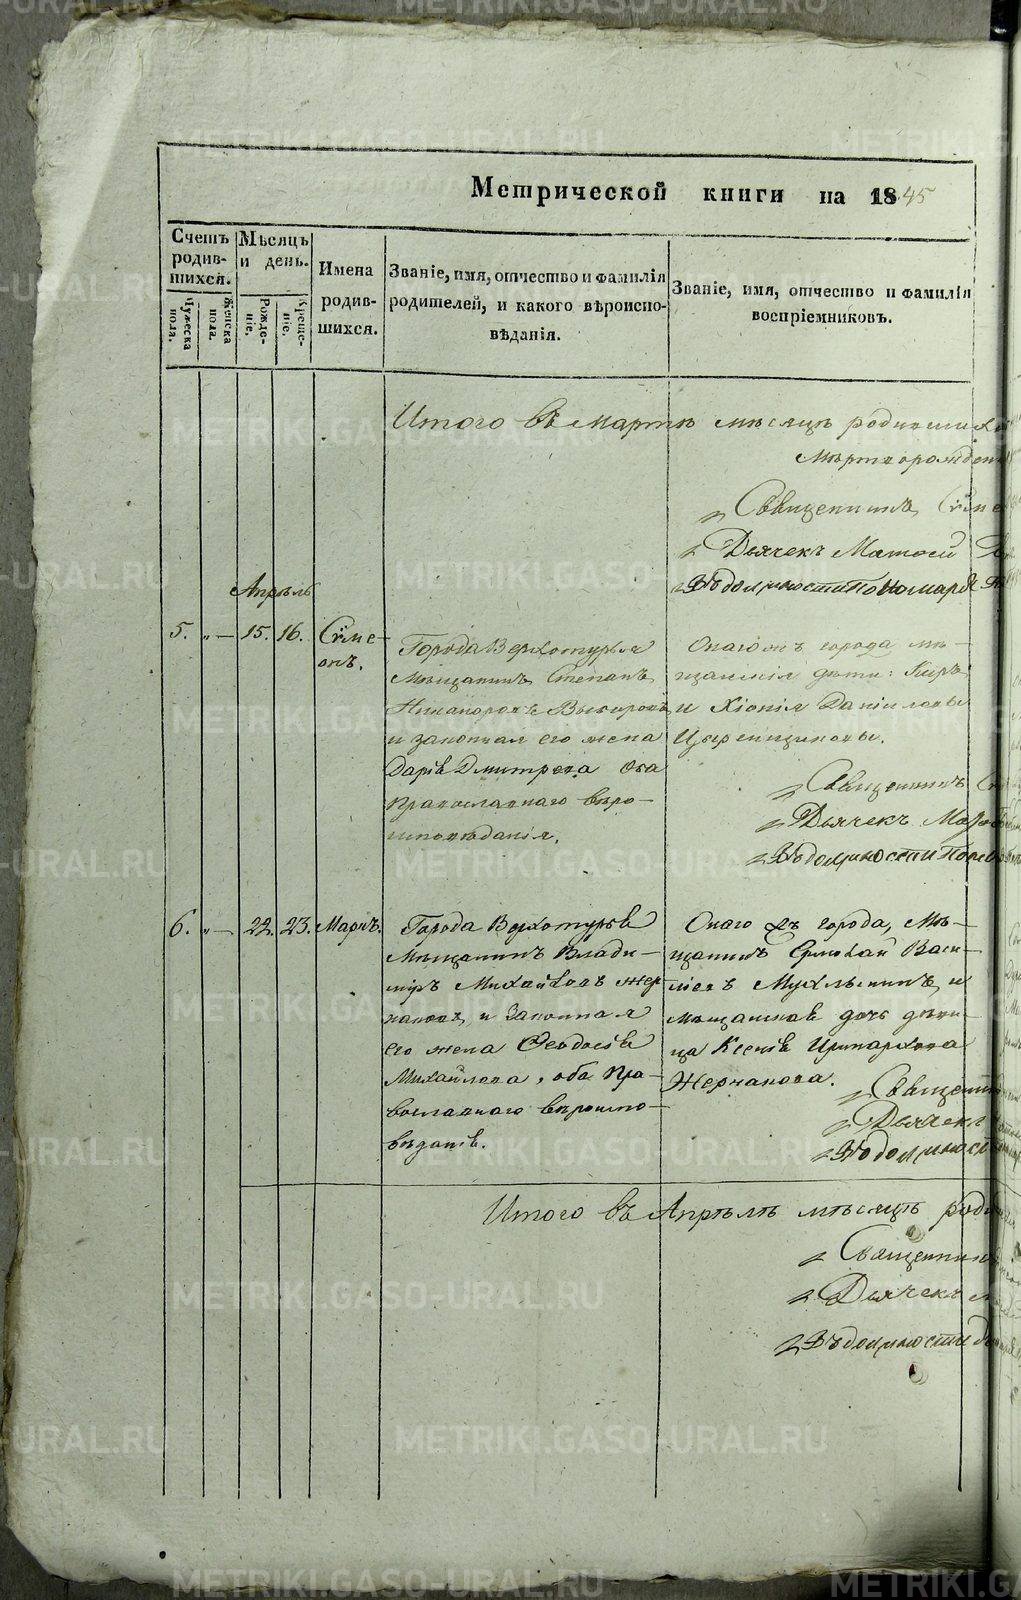 Метрической книги на 1845
Счетъ родив-шихся.
Мѣсяцъ и день.
Имена родив-шихся.
Званіе, имя, отчество и фамилія родителей, и какого вѣроиспо-вѣданія.
Званіе, имя, отчество и фамилія воспріемниковъ.
Мужеска пола.
Женска пола.
Рожде-ніе.
Креще-ніе.
Итого въ мартѣ мѣсяцѣ родившихъ
Мертворожден
Священникъ Сѵме
Дьячекъ Матѳей
Въ должности Пономаря
Апрѣль
5. „— 15. 16. Сѵме-
онъ.
Города Верхотурья
Мѣщанинъ Степанъ
Никаноровъ
и законная его жена
Дарія Дмитрева Оба
Православнаго вѣро-
исповѣданія.
Онаго жъ города мѣ-
щанскія дѣти: Киръ
и Хіонія Даніиловы
Священникъ
Дьячекъ
Въ должности Поно
6. „— 22. 23. Маркъ.
Города Верхотурья
Мѣщанинъ Влади-
миръ Михайловъ Жер-
наковъ, и Законная
его жена Ѳеодосія
Михайлова, оба Пра-
вославнаго вѣроиспо-
вѣданія.
Онаго жъ города, Мѣ-
щанинъ Ермолай Васи-
льевъ и
мѣщанская дочь дѣви-
ца Ксенія Иринархова
Жернакова.
Священни
Дьячекъ
Въ должност
Итого въ Апрѣлѣ мѣсяцѣ роди
Священник
Дьячекъ
Въ должности
METRIKI.GASO-URAL.RU